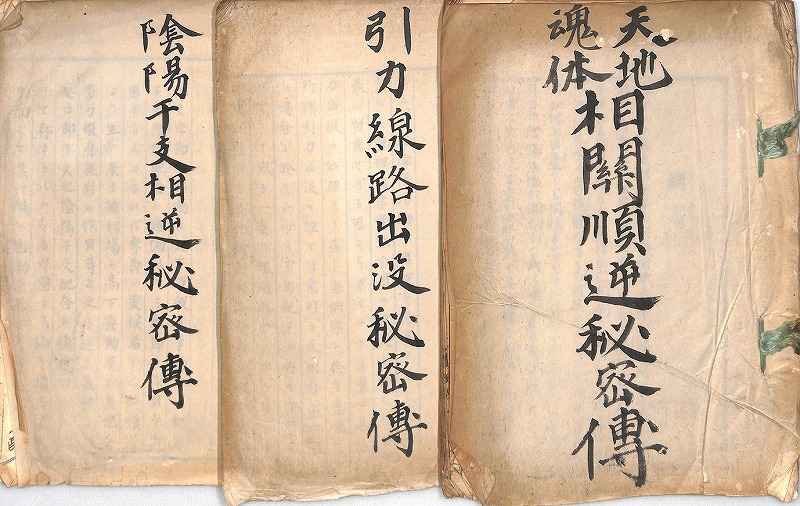 天地
魂体
相關順逆秘密傳
引力線路出没秘密傳
陰陽干支相逆秘密傳